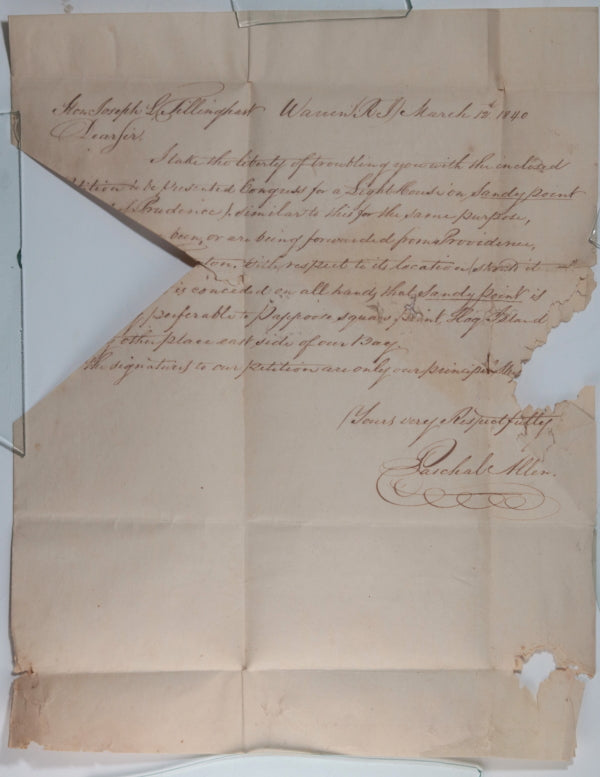 Hon Joseph L Tillinghast Warren (R I) March 12th 1840
Dear Sir,
I take the liberty of troubling you with the enclosed
tition to be presented Congress for a Light House on Sandy point
Prudence), similar to this for the same purpose,
been, or are being forwarded from Providence,
ton. With respect to its location, it
is conceded on all hands that Sandy point is
preferable to Pappoose squaw, Point, Hog Island
other place east side of our Bay
the signatures to our petition are only our princip
Yours very Respectfully
Paschal Allen.